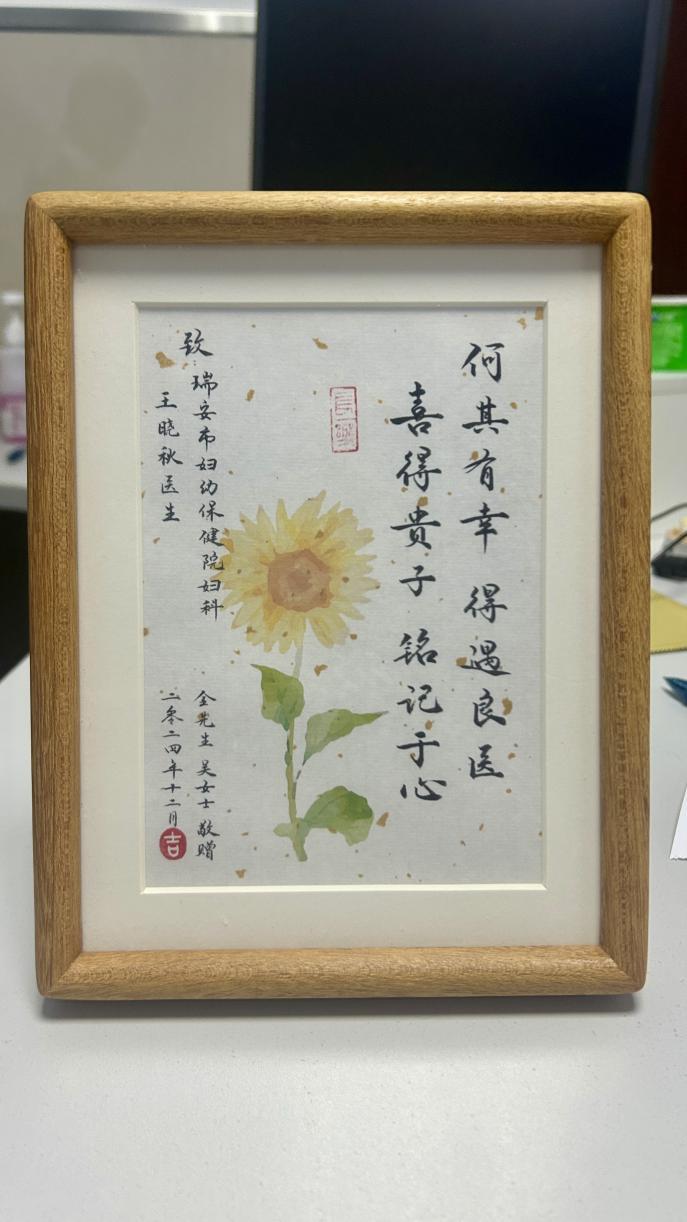 何其有幸 得遇良医
喜得贵子 铭记于心
致：瑞安市妇幼保健院妇科
王晓秋医生
金先生 吴女士 敬赠
二零二四年十二月
吉